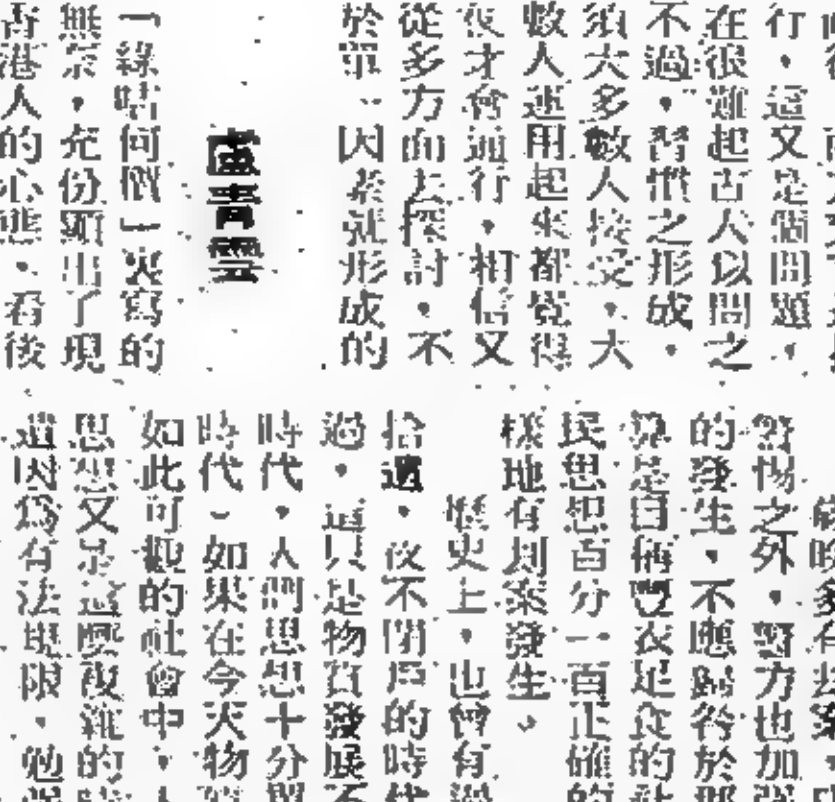 行，這又是個問題，
在很難起古人似問之
不過，習慣之形成，
須大多數人接受，大
數人運用起來都覺得
才會通行，相信又
從多方面去探討，不
於單、因素就形成的
盧青雲
寫的
無奈，充份顯出了現
香港人的心態，看後
之外，警方也加
的發生，不應歸咎於那
算是自稱豐衣足食的社
民思想百分一百正確的
樣地有刦案發生。
歷史上，也曾有過
拾遺，夜不閉戶的時代
過，這只是物質發展不
時代，人們思想十分單
時代。如果在今天物
如此可觀的社會中，人
思想又是這麼複雜的時
這因為有法規限，勉強